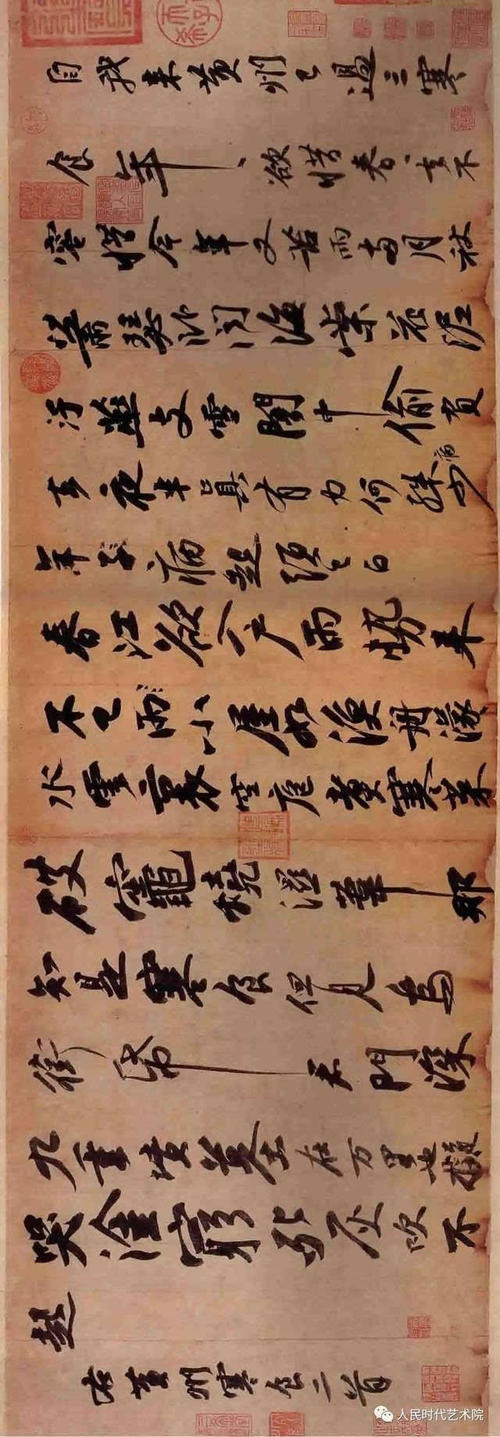 自我来黄州已過三寒
食年〻欲惜春〻去不
容惜今年又苦雨兩月秋
蕭瑟卧聞海棠花泥
汙燕支雪闇中偷負
去夜半真有力何殊病少
年子病起頭已白
春江欲入户雨勢来
不已雨小屋如漁舟濛〻
水雲裏空庖煮寒菜
破竈燒濕葦那
知是寒食但見烏
銜帋君門深
九重墳墓在万里也擬
哭塗窮死灰吹不
起
右黄州寒食二首
人民时代艺术院